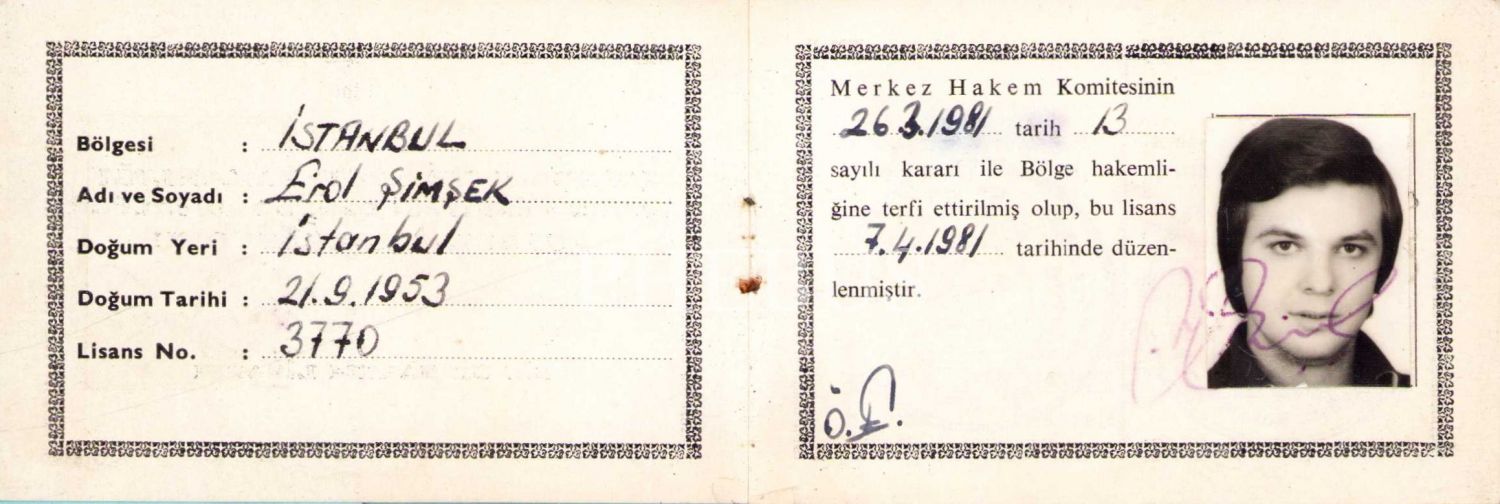 Bölgesi : İSTANBUL
Adı ve Soyadı : Erol ŞİMŞEK
Doğum Yeri : İstanbul
Doğum Tarihi : 21.9.1953
Lisans No. : 3770
Merkez Hakem Komitesinin
26.3.1981 tarih 13
sayılı kararı ile Bölge hakemli-
ğine terfi ettirilmiş olup, bu lisans
7.4.1981 tarihinde düzen-
lenmiştir.